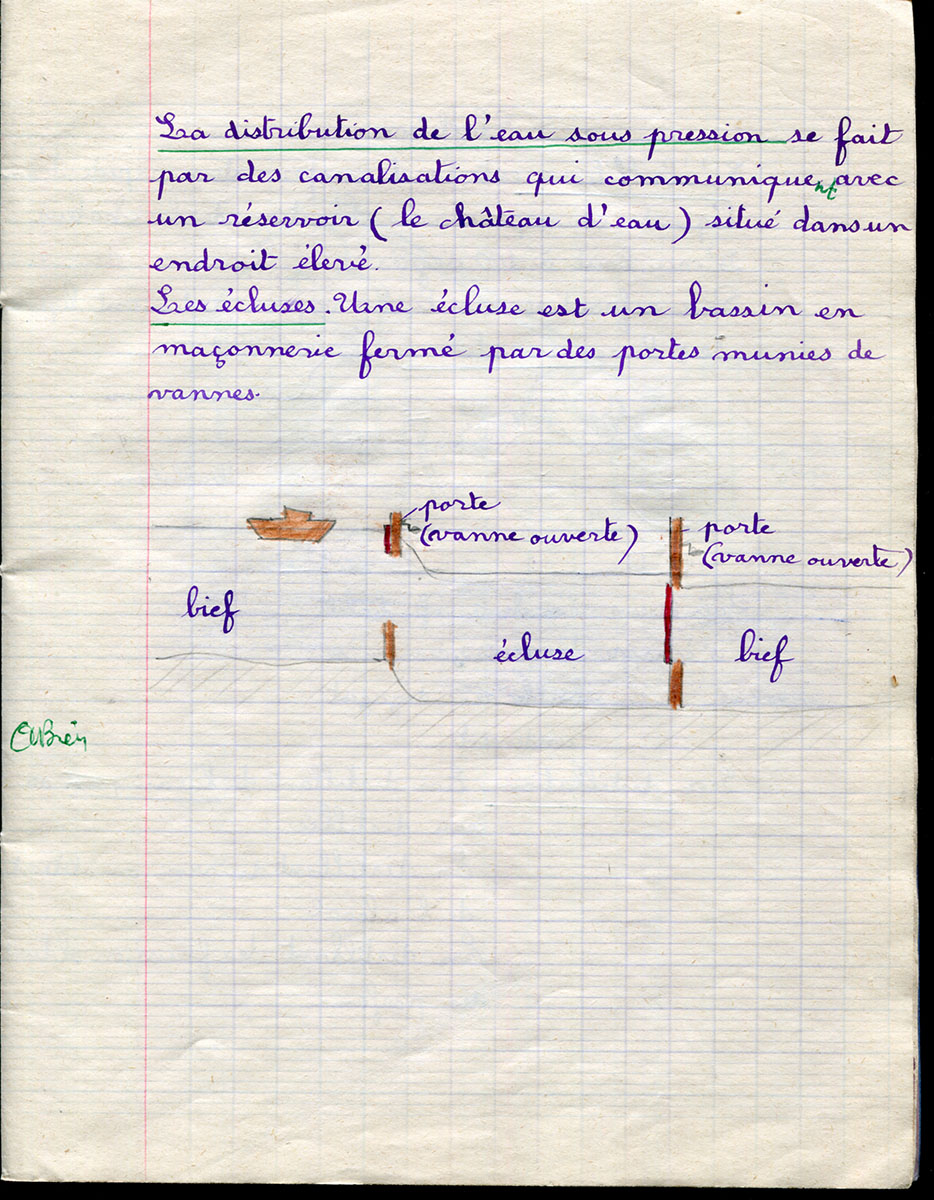 La distribution de l'eau sous pression se fait
par des canalisations qui communiquent avec
un réservoir (le château d'eau) situé dans un
endroit élevé.
Les écluses. Une écluse est un bassin en
maçonnerie fermé par des portes munies de
vannes.
porte
(vanne ouverte)
porte
(vanne ouverte)
bief
écluse
bief